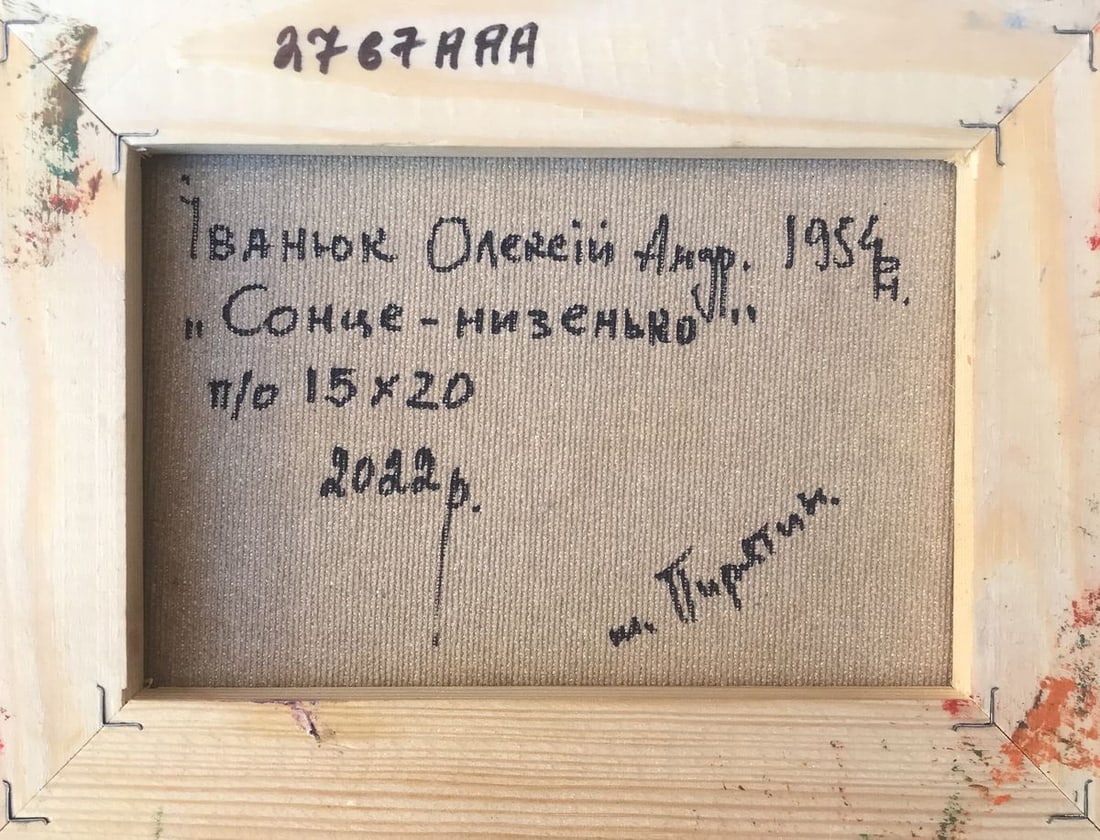 2767AAA
Іванюк Олексій Андр. 1954 р.н.
„Сонце-низенько"
п/о 15х20
2022р.
м. Пирятин.